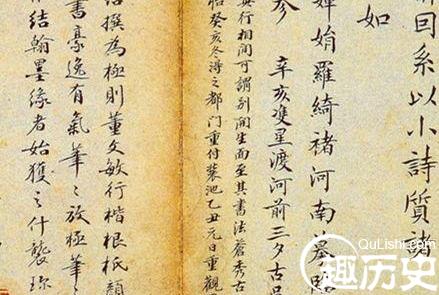 回系以小詩質諸
如
嬋娟羅綺褚河南摹
辛亥雙星渡河前三夕古吳
其行相間可謂別開生面至其書法蒼秀古
癸亥冬得之都門重付裝池乙丑元日重觀
撰為極則董文敏行楷根柢顏
書豪逸有氣筆〻放極筆〻
結翰墨緣者始獲之什襲珎
QuLishi.com
趣历史